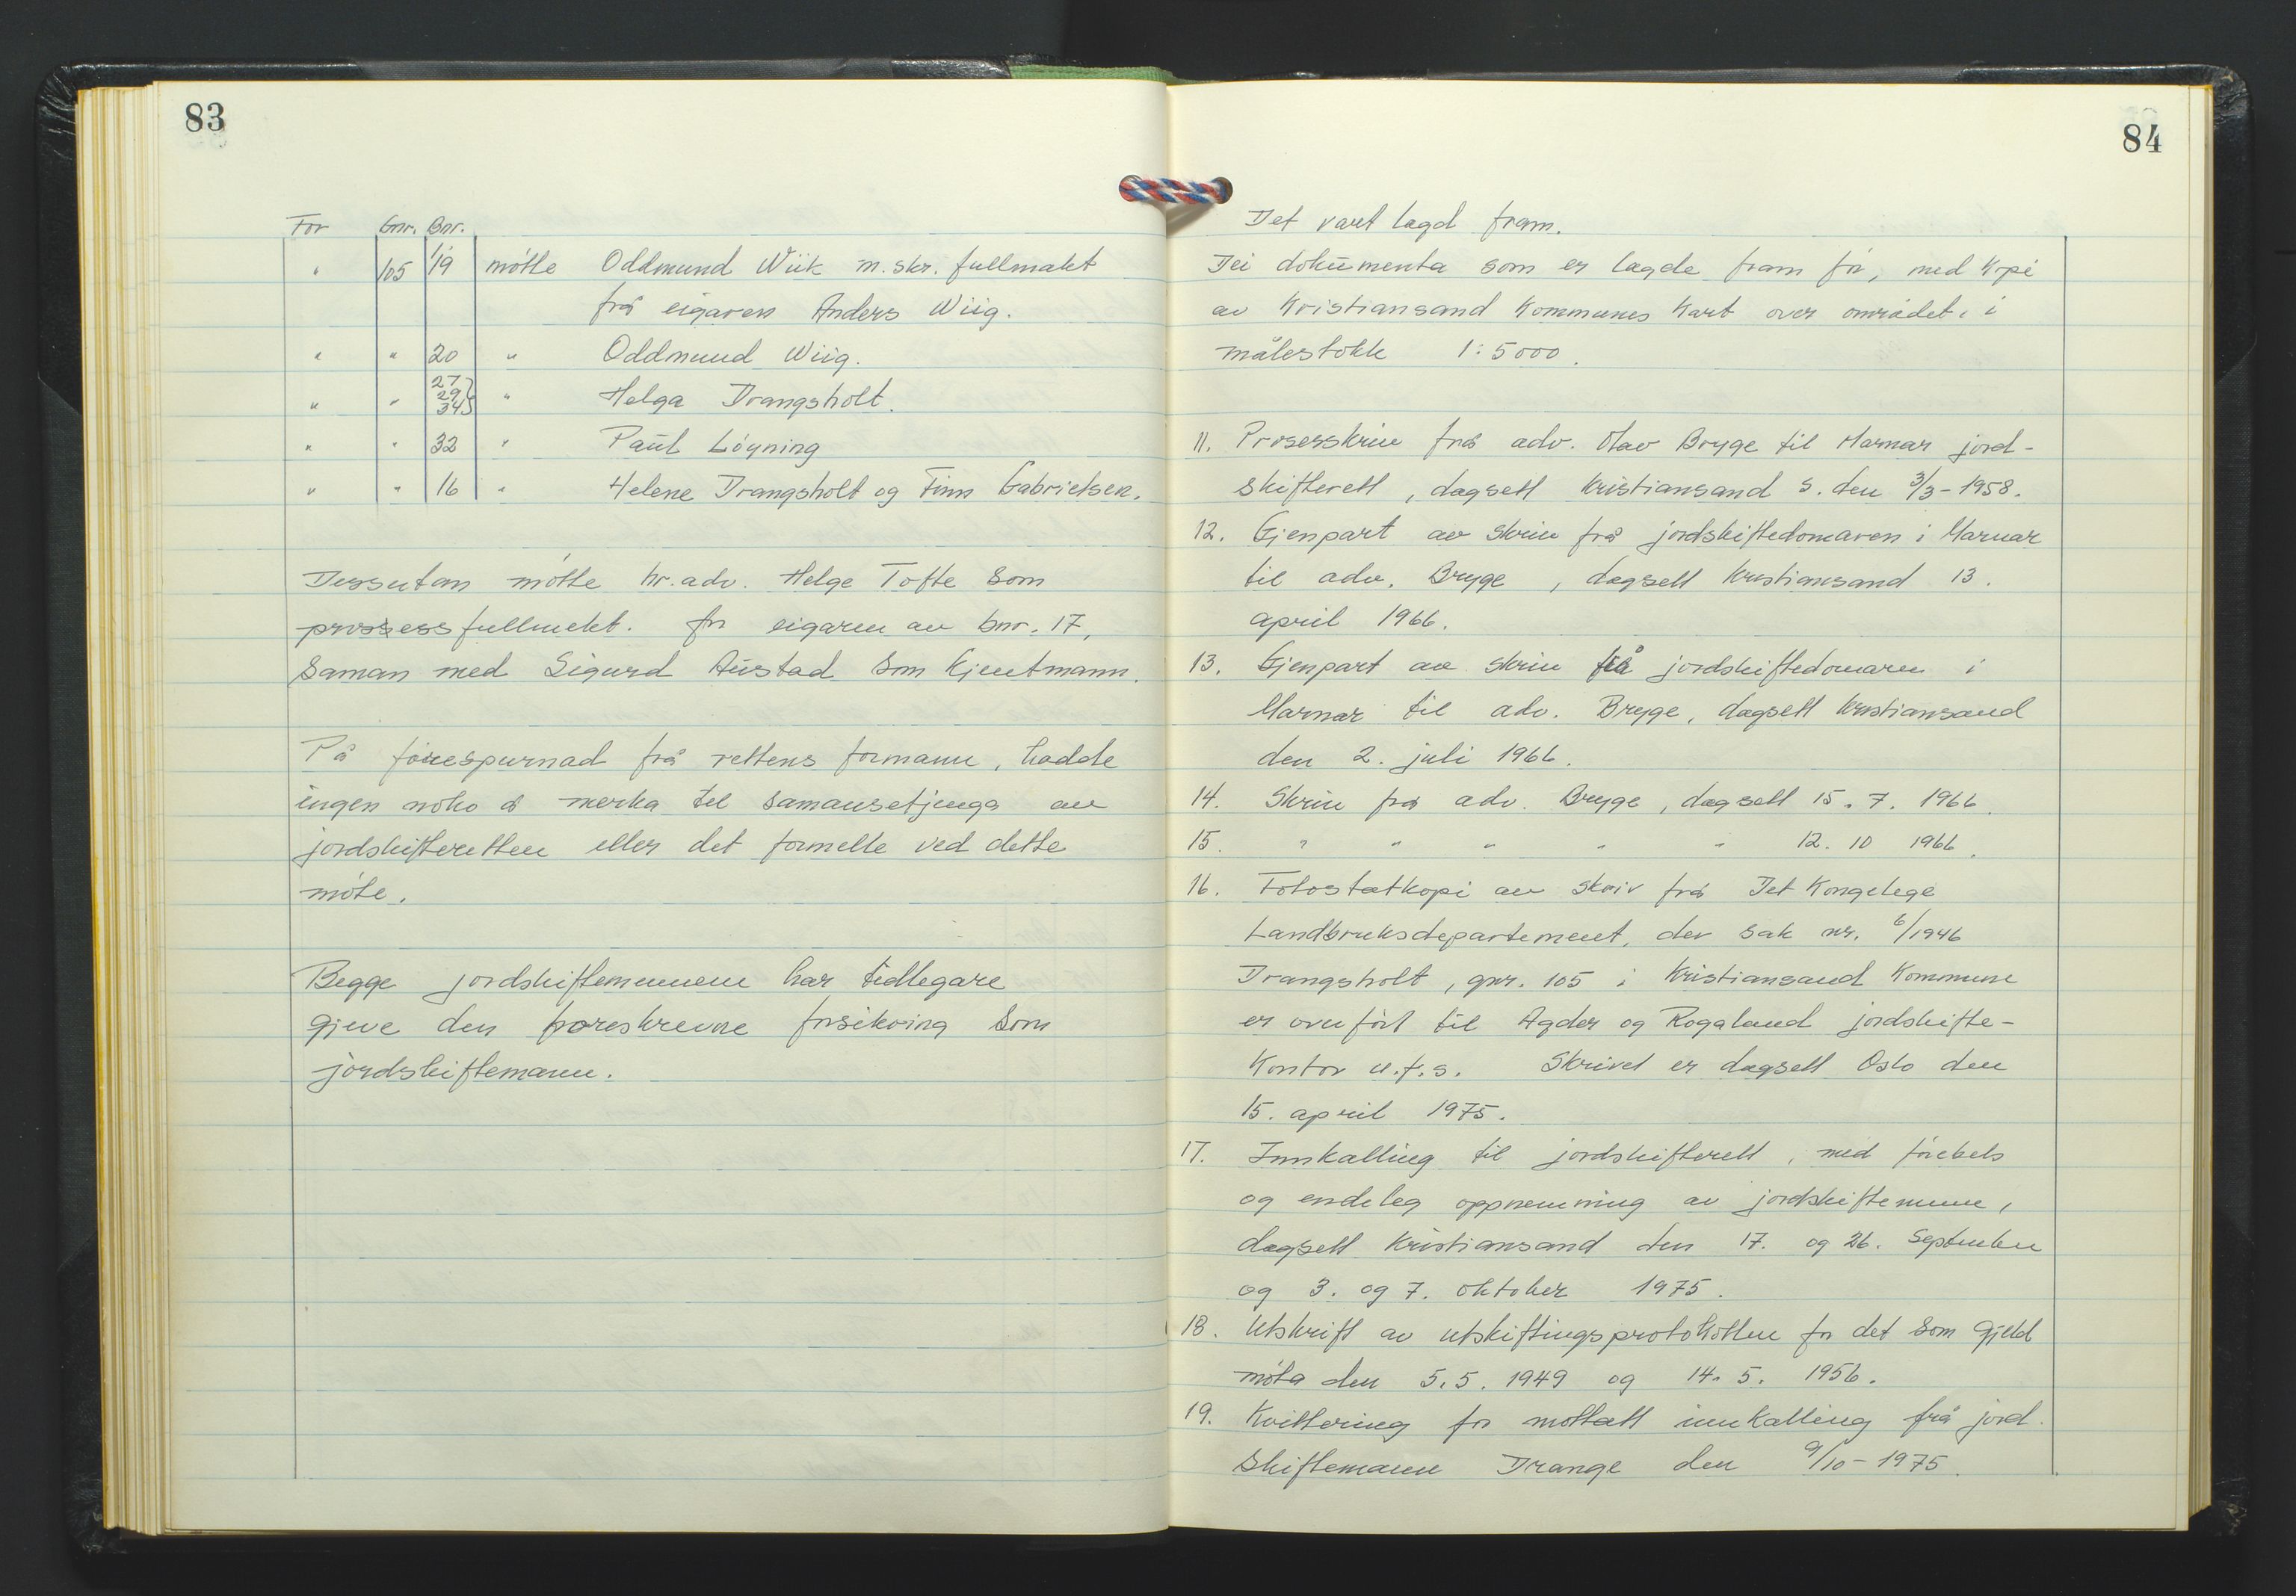 83
For Gnr. Bnr.
" 105 19 møtte Oddmund Wiik m. skr. fullmakt
frå eigaren Anders Wiig.
" " 20 " Oddmund Wiig.
" " 27 29 34 " Helga Drangsholt.
" " 32 " Paul Løyning
" " 16 " Helene Drangsholt og Finn Gabrielsen.
Dessutan møtte hr. adv. Helge Tofte som
prosessfullmekt. for eigaren av bnr. 17,
saman med Sigurd Austad som kjentmann.
På førespurnad frå rettens formann, hadde
ingen noko å merka til samansetjinga av
jordskifteretten eller det formelle ved dette
møte.
Begge jordskiftemennene har tidlegare
gjeve den foreskrevne forsikring som
jordskiftemann.
84
Det vart lagd fram.
Dei dokumenta som er lagde fram før, med kopi
av Kristiansand Kommunes Kart over området, i
målestokk 1:5000.
11. Prosesskriv frå adv. Olav Bryge til Marnar jord-
skifterett, dagsett Kristiansand S. den 3/3-1958.
12. Gjenpart av skriv frå jordskiftedomaren i Marnar
til adv. Bryge, dagsett Kristiansand 13.
april 1966.
13. Gjenpart av skriv frå jordskiftedomaren i
Marnar til adv. Bryge, dagsett Kristiansand
den 2. juli 1966.
14. Skriv frå adv. Bryge, dagsett 15. 7. 1966.
15. " " " " " 12. 10 1966.
16. Fotostatkopi av skriv frå Det Kongelege
Landbruksdepartement, der sak nr. 6/1946
Drangsholt, gnr. 105 i Kristiansand Kommune
er overført til Agder og Rogaland jordskifte-
Kontor u.f.s. Skrivet er dagsett Oslo den
15. april 1975.
17. Innkalling til jordskifterett, med førebels
og endeleg oppnemning av jordskiftemenn,
dagsett Kristiansand den 17. og 26. September
og 3. og 7. oktober 1975.
18. Utskrift av utskiftingsprotokollen for det som gjeld
møta den 5.5. 1949 og 14. 5. 1956.
19. Kvittering for mottatt innkalling frå jord-
skiftemann Drange den 9/10-1975.